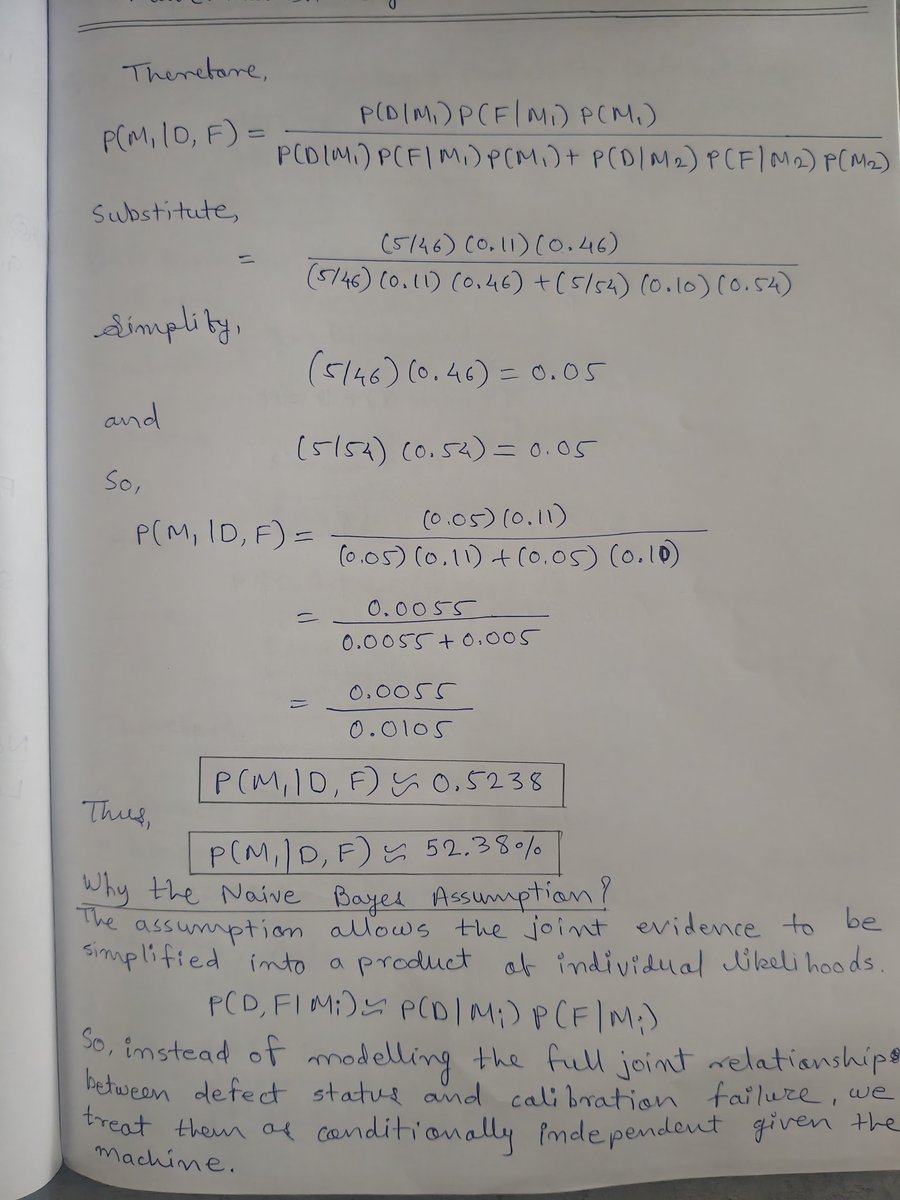 Therefore,
P(M₁|D, F) = P(D|M₁) P(F|M₁) P(M₁) / P(D|M₁) P(F|M₁) P(M₁) + P(D|M2) P(F|M2) P(M2)
Substitute,
= (5/46) (0.11) (0.46) / (5/46) (0.11) (0.46) + (5/54) (0.10) (0.54)
Simplify,
(5/46) (0.46) = 0.05
and
(5/54) (0.54) = 0.05
So,
P(M₁|D, F) = (0.05) (0.11) / (0.05) (0.11) + (0.05) (0.10)
= 0.0055 / 0.0055 + 0.005
= 0.0055 / 0.0105
P(M₁|D, F) ≈ 0.5238
Thus,
P(M₁|D, F) ≈ 52.38%
Why the Naive Bayes Assumption?
The assumption allows the joint evidence to be
simplified into a product of individual likelihoods.
P(D, F|Mi) ≈ P(D|Mi) P(F|Mi)
So, instead of modelling the full joint relationships
between defect status and calibration failure, we
treat them as conditionally independent given the
machine.